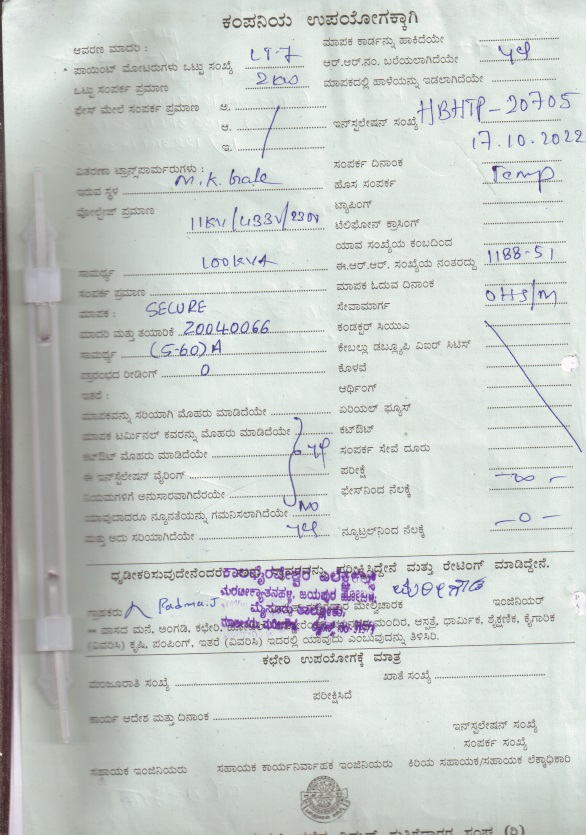 ಕಂಪನಿಯ ಉಪಯೋಗಕ್ಕಾಗಿ
ಆವರಣ ಮಾದರಿ : LT-7
* ಪಾಯಿಂಟ್ ಮೋಟರುಗಳು ಒಟ್ಟು ಸಂಖ್ಯೆ
ಒಟ್ಟು ಸಂಪರ್ಕ ಪ್ರಮಾಣ 2KW
ಫೇಸ್ ಮೇಲೆ ಸಂಪರ್ಕ ಪ್ರಮಾಣ ಅ.
ಆ.
ಇ.
ವಿತರಣಾ ಟ್ರಾನ್ಸ್‌ಪಾರ್ಮರುಗಳು :
ಇರುವ ಸ್ಥಳ M.K. Gate
ವೋಲ್ಟೇಜ್ ಪ್ರಮಾಣ 11KV/433V/230V
ಸಾಮರ್ಥ್ಯ 100KVA
ಸಂಪರ್ಕ ಪ್ರಮಾಣ
ಮಾಪಕ : SECURE
ಮಾದರಿ ಮತ್ತು ತಯಾರಿಕೆ 20040066
ಸಾಮರ್ಥ್ಯ (5-60)A
ಪ್ರಾರಂಭದ ರೀಡಿಂಗ್ 0
ಇತರೆ :
ಮಾಪಕವನ್ನು ಸರಿಯಾಗಿ ಮೊಹರು ಮಾಡಿದೆಯೇ
ಮಾಪಕ ಟರ್ಮಿನಲ್ ಕವರನ್ನು ಮೊಹರು ಮಾಡಿದೆಯೇ
ಕಟ್‌ಔಟ್ ಮೊಹರು ಮಾಡಿದೆಯೇ
ಈ ಇನ್‌ಸ್ಟಲೇಷನ್ ವೈರಿಂಗ್
ನಿಯಮಗಳಿಗೆ ಅನುಸಾರವಾಗಿದೆಯೇ
ಯಾವುದಾದರೂ ನ್ಯೂನತೆಯನ್ನು ಗಮನಿಸಲಾಗಿದೆಯೇ NO
ಮತ್ತು ಅದು ಸರಿಯಾಗಿದೆಯೇ
ಮಾಪಕ ಕಾರ್ಡನ್ನು ಹಾಕಿದೆಯೇ
ಆರ್.ಆರ್.ನಂ. ಬರೆಯಲಾಗಿದೆಯೇ
ಮಾಪಕದಲ್ಲಿ ಹಾಳೆಯನ್ನು ಇಡಲಾಗಿದೆಯೇ
ಇನ್‌ಸ್ಟಲೇಷನ್ ಸಂಖ್ಯೆ HBHTP-20705
17.10.2022
ಸಂಪರ್ಕ ದಿನಾಂಕ
ಹೊಸ ಸಂಪರ್ಕ Temp
ಟ್ಯಾಪಿಂಗ್
ಟೆಲಿಫೋನ್ ಕ್ರಾಸಿಂಗ್
ಯಾವ ಸಂಖ್ಯೆಯ ಕಂಬದಿಂದ
ಈ.ಆರ್.ಆರ್. ಸಂಖ್ಯೆಯ ನಂತರದ್ದು 1188-51
ಮಾಪಕ ಓದುವ ದಿನಾಂಕ
ಸೇವಾಮಾರ್ಗ OHS/M
ಕಂಡಕ್ಟರ್ ಸಿಯುಎ
ಕೇಬಲ್ಲು ಡಬ್ಲ್ಯೂಪಿ ವಿಐರ್ ಸಿಟಿಸ್
ಕೊಳವೆ
ಆರ್ಥಿಂಗ್
ಏರಿಯಲ್ ಫ್ಯೂಸ್
ಕಟ್‌ಔಟ್
ಸಂಪರ್ಕ ಸೇವೆ ದೂರು
ಪರೀಕ್ಷೆ
ಫೇಸ್‌ನಿಂದ ನೆಲಕ್ಕೆ
ನ್ಯೂಟ್ರಲ್‌ನಿಂದ ನೆಲಕ್ಕೆ -0-
ಧೃಡೀಕರಿಸುವುದೇನೆಂದರೆ ಪರೀಕ್ಷಿಸಿದ್ದೇನೆ ಮತ್ತು ರೇಟಿಂಗ್ ಮಾಡಿದ್ದೇನೆ.
ಕಾಲಭೈರವೇಶ್ವರ ಎಲೆಕ್ಟ್ರಿಕಲ್ಸ್
ಗ್ರಾಹಕರು Padma.J ಮೇಲ್ವಿಚಾರಕ ಇಂಜಿನಿಯರ್
** ವಾಸದ ಮನೆ, ಅಂಗಡಿ, ಕಛೇರಿ, ಮಂದಿರ, ಆಸ್ಪತ್ರೆ, ಧಾರ್ಮಿಕ, ಶೈಕ್ಷಣಿಕ, ಕೈಗಾರಿಕ
(ವಿವರಿಸಿ) ಕೃಷಿ, ಪಂಪಿಂಗ್, ಇತರೆ (ವಿವರಿಸಿ) ಇದರಲ್ಲಿ ಯಾವುದು ಎಂಬುವುದನ್ನು ತಿಳಿಸಿರಿ.
ಕಛೇರಿ ಉಪಯೋಗಕ್ಕೆ ಮಾತ್ರ
ಮಂಜೂರಾತಿ ಸಂಖ್ಯೆ ಖಾತೆ ಸಂಖ್ಯೆ
ಪರೀಕ್ಷಿಸಿದೆ
ಕಾರ್ಯ ಆದೇಶ ಮತ್ತು ದಿನಾಂಕ
ಇನ್‌ಸ್ಟಲೇಷನ್ ಸಂಖ್ಯೆ
ಸಂಪರ್ಕ ಸಂಖ್ಯೆ
ಸಹಾಯಕ ಇಂಜಿನಿಯರು ಸಹಾಯಕ ಕಾರ್ಯನಿರ್ವಾಹಕ ಇಂಜಿನಿಯರು ಕಿರಿಯ ಸಹಾಯಕ/ಸಹಾಯಕ ಲೆಕ್ಕಾಧಿಕಾರಿ